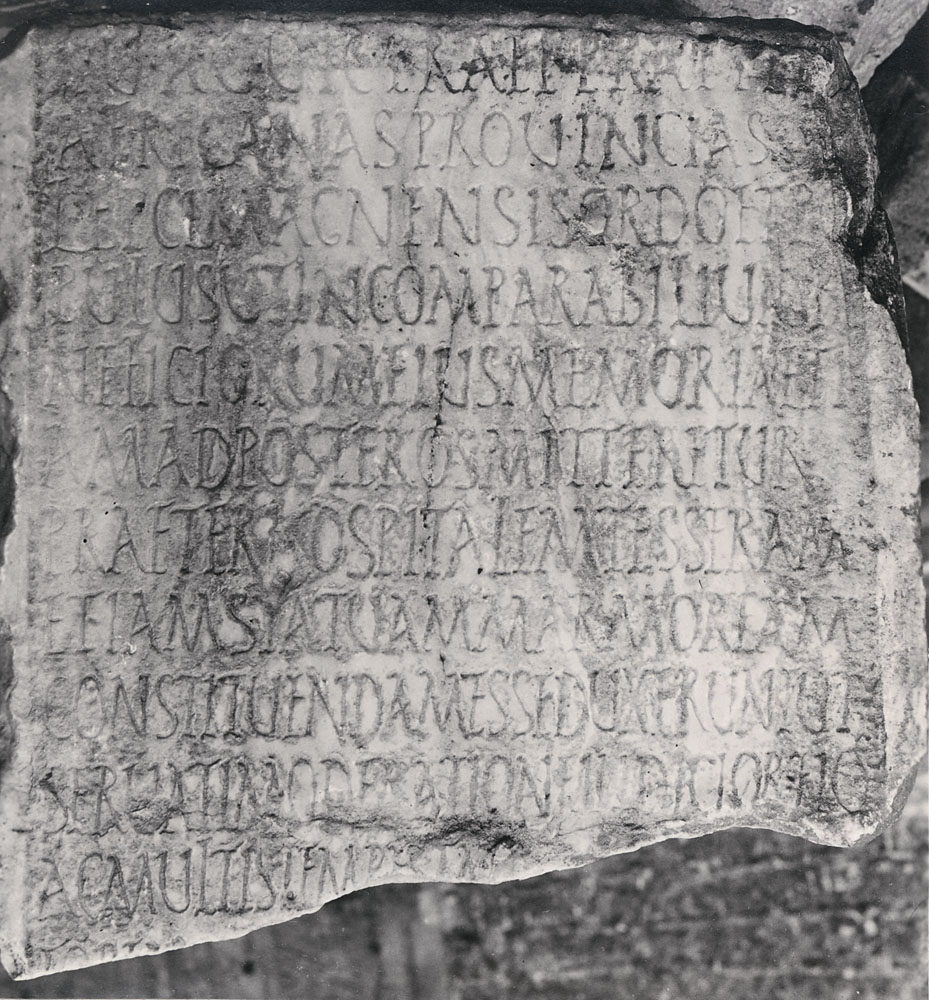 PRAEF PRAET
AFRICANAS PROUINCIAS
LEPCIMAGNENSIS ORDO ET P
PULUS UT INCOMPARABILIUM
NEFICIORUM EIUS MEMORIA ETI
AM AD POSTEROS MITTERETUR
PRAETER HOSPITALEM TESSERAM
ETIAM STATUAM MARMOREAM
CONSTITUENDAM ESSE DUXERUNT UT
SERUATI MODERATIONE IUDICIOR HIC
AC MULTIS